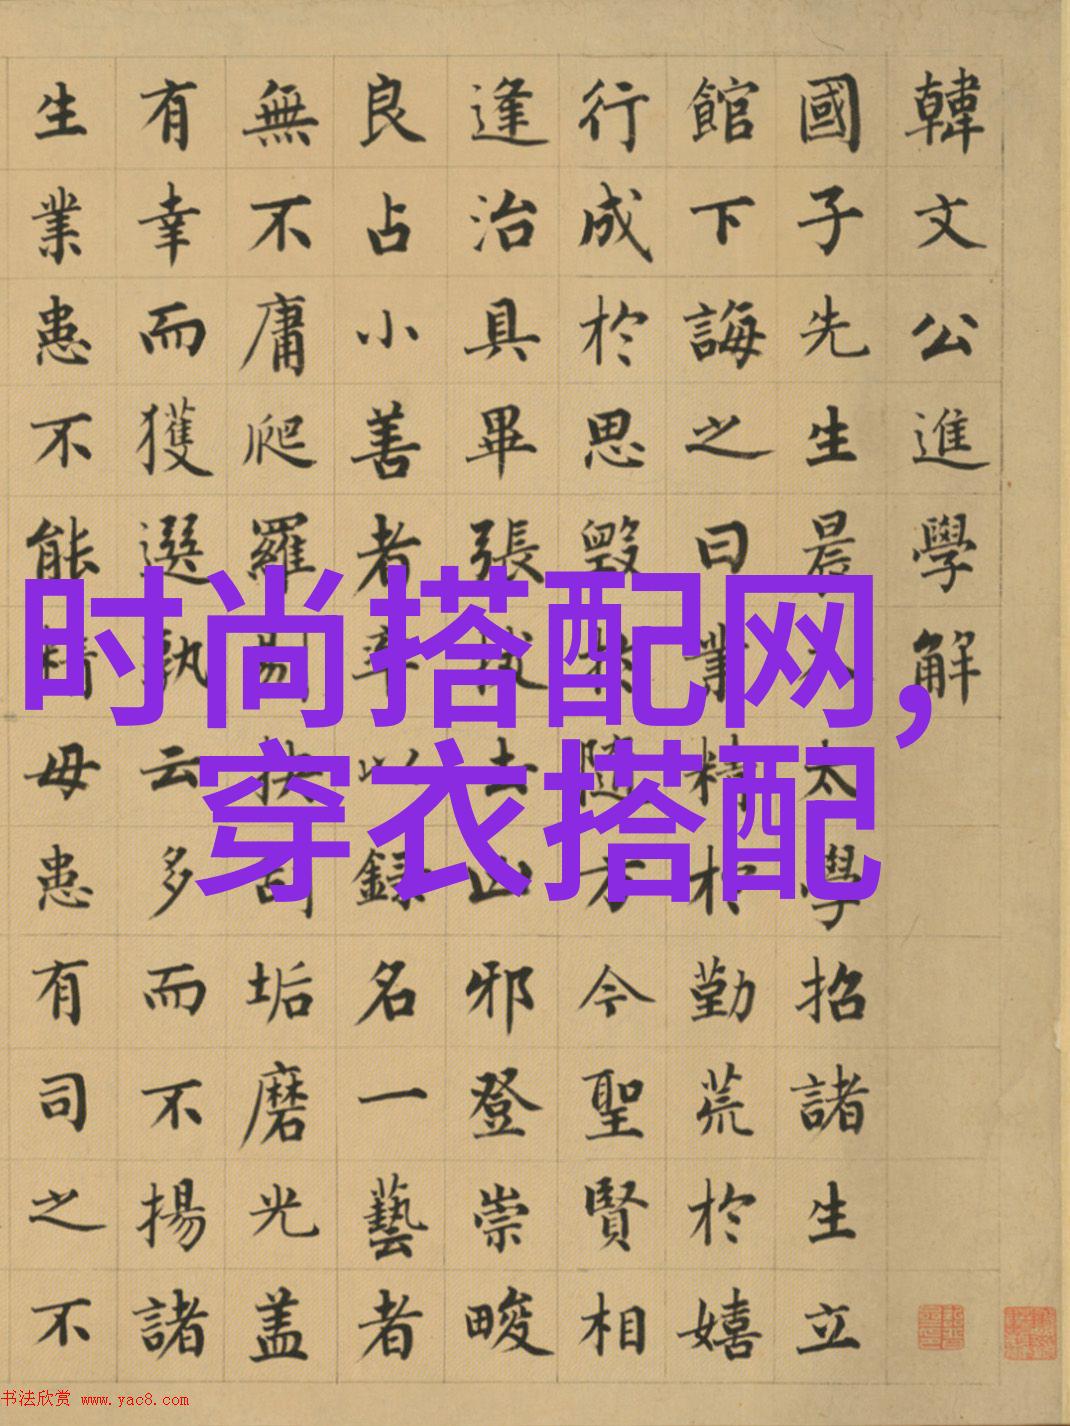 韓文公進學解
國子先生晨入太學招諸生立
館下誨之曰業精於勤荒於嬉
行成於思毀於隨方今聖賢相
逢治具畢張拔去凶邪登崇畯
良占小善者率以錄名一藝者
無不庸爬羅剔抉刮垢磨光盖
有幸而獲選孰云多而不揚諸
生業患不能精毋患有司之不
时尚搭配网,
穿衣搭配
书法欣赏 www.yac8.com